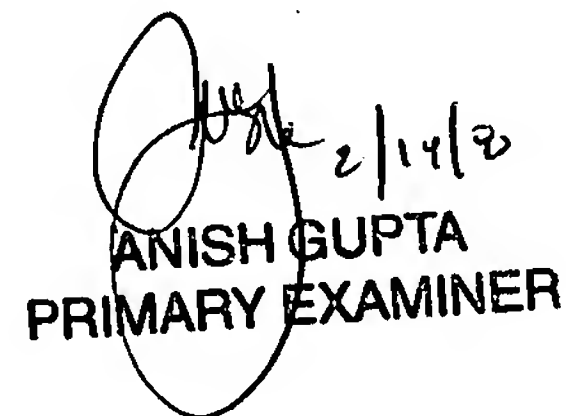 2/14/8
ANISH GUPTA
PRIMARY EXAMINER